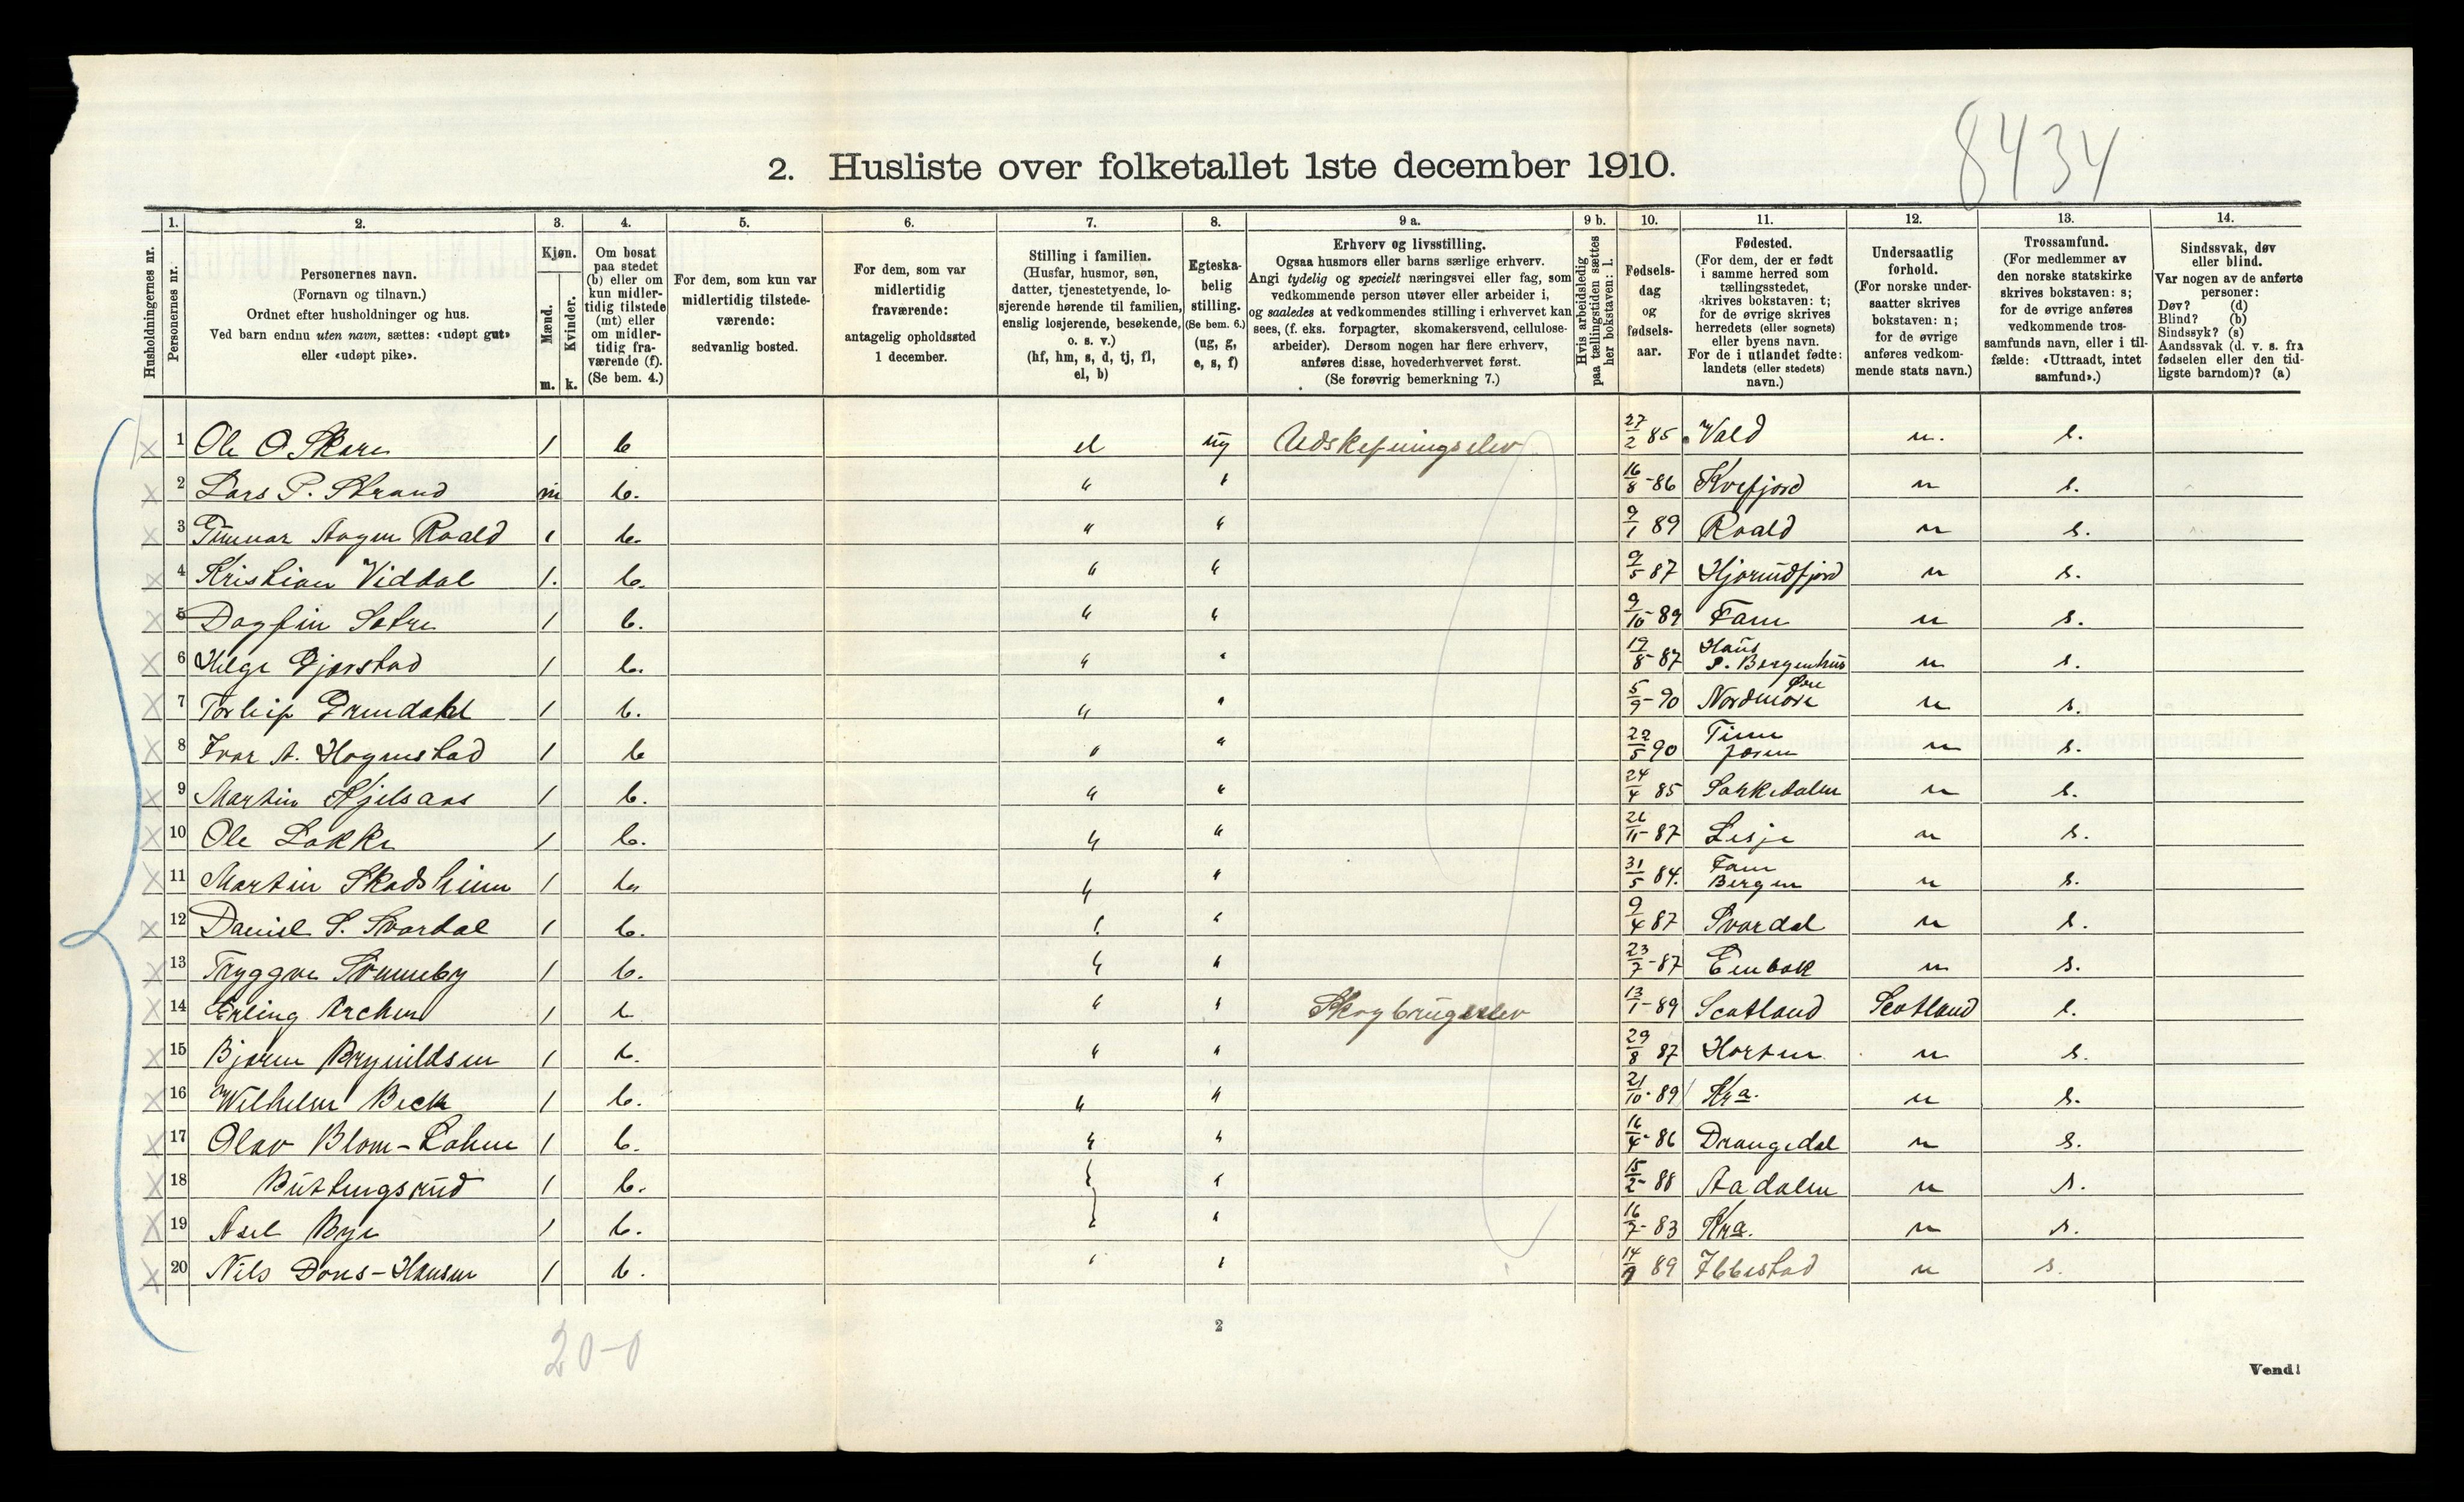 8434
2. Husliste over folketallet 1ste december 1910.
Husholdningernes nr.
1.
Personernes nr.
2.
Personernes navn.
(Fornavn og tilnavn.)
Ordnet efter husholdninger og hus.
Ved barn endnu uten navn, sættes: «udøpt gut»
eller «udøpt pike».
3.
Kjøn.
Mænd.
Kvinder.
m. k.
4.
Om bosat
paa stedet
(b) eller om
kun midler-
tidig tilstede
(mt) eller
om midler-
tidig fra-
værende (f).
(Se bem. 4.)
5.
For dem, som kun var
midlertidig tilstede-
værende:
sedvanlig bosted.
6.
For dem, som var
midlertidig
fraværende:
antagelig opholdssted
1 december.
7.
Stilling i familien.
(Husfar, husmor, søn,
datter, tjenestetyende, lo-
sjerende hørende til familien,
enslig losjerende, besøkende,
o. s. v.)
(hf, hm, s, d, tj, fl,
el, b)
8.
Egteska-
belig
stilling.
(Se bem. 6.)
(ug, g,
e, s, f)
9 a.
Erhverv og livsstilling.
Ogsaa husmors eller barns særlige erhverv.
Angi tydelig og specielt næringsvei eller fag, som
vedkommende person utøver eller arbeider i,
og saaledes at vedkommendes stilling i erhvervet kan
sees, (f. eks. forpagter, skomakersvend, cellulose-
arbeider). Dersom nogen har flere erhverv,
anføres disse, hovederhvervet først.
(Se forøvrig bemerkning 7.)
9 b.
Hvis arbeidsledig
paa tællingstiden sættes
her bokstaven: l.
10.
Fødsels-
dag
og
fødsels-
aar.
11.
Fødested.
(For dem, der er født
i samme herred som
tællingsstedet,
skrives bokstaven: t;
for de øvrige skrives
herredets (eller sognets)
eller byens navn.
For de i utlandet fødte:
landets (eller stedets)
navn.)
12.
Undersaatlig
forhold.
(For norske under-
saatter skrives
bokstaven: n;
for de øvrige
anføres vedkom-
mende stats navn.)
13.
Trossamfund.
(For medlemmer av
den norske statskirke
skrives bokstaven: s;
for de øvrige anføres
vedkommende tros-
samfunds navn, eller i til-
fælde: «Uttraadt, intet
samfund».)
14.
Sindssvak, døv
eller blind.
Var nogen av de anførte
personer:
Døv? (d)
Blind? (b)
Sindssyk? (s)
Aandssvak (d. v. s. fra
fødselen eller den tid-
ligste barndom)? (a)
1 Ole O Skare 1 b el ug Udskiftningselev 27/2 85 Vold n. s.
2 Lars P. Strand m b. " " 16/8-86 Kvefjord n s.
3 Gunnar Aagen Roald 1 b. " " 9/1 89 Roald n s.
4 Kristian Viddal 1. b. " " 9/5 87 Hjørundfjord n s.
5 Dagfin Sætre 1 b. " " 9/10-89 Fane n s.
6 Helge Gjerstad 1 b. " " 19/8-87 Haus S. Bergenhus n s.
7 Torleif Grøndahl 1 b. " " 5/9-90 Øre Nordmøre n s.
8 Ivar A. Hognestad 1 b " " 22/5 90 Time Jæren n s.
9 Martin Kjelsaas 1 b. " " 24/4 85 Sørkedalen n s.
10 Ole Løkke 1 b. " " /11-87 Lesje n s.
11 Martin Skodsheim 1 b " " 31/5 84. Fane Bergen n s.
12 Daniel S. Svardal 1 b. " " 9/4 87 Svardal n s.
13 Tryggve 1 b. " " 23/7-87 Enbak n s.
14 Erling Archer 1 b " " Skogbrugselev 13/1-89 Scotland Scotland s.
15 Bjørn Brynildsen 1 b. " " 29/8 87 Horten n s.
16 Wilhelm Beck 1 b. " " 21/10-89 Kra. n s.
17 Olav Blom- 1 b. " " 16/4-86 Drangedal n s.
18 Buttingsrud 1 b. " " 15/2-88 Aadalen n s.
19 Axel Bye 1 b. " " 16/7-83 Kra. n s.
20 Nils Dons-Hansen 1 b. " " 14/9 89 Ibbestad n s.
20-0
2
Vend!